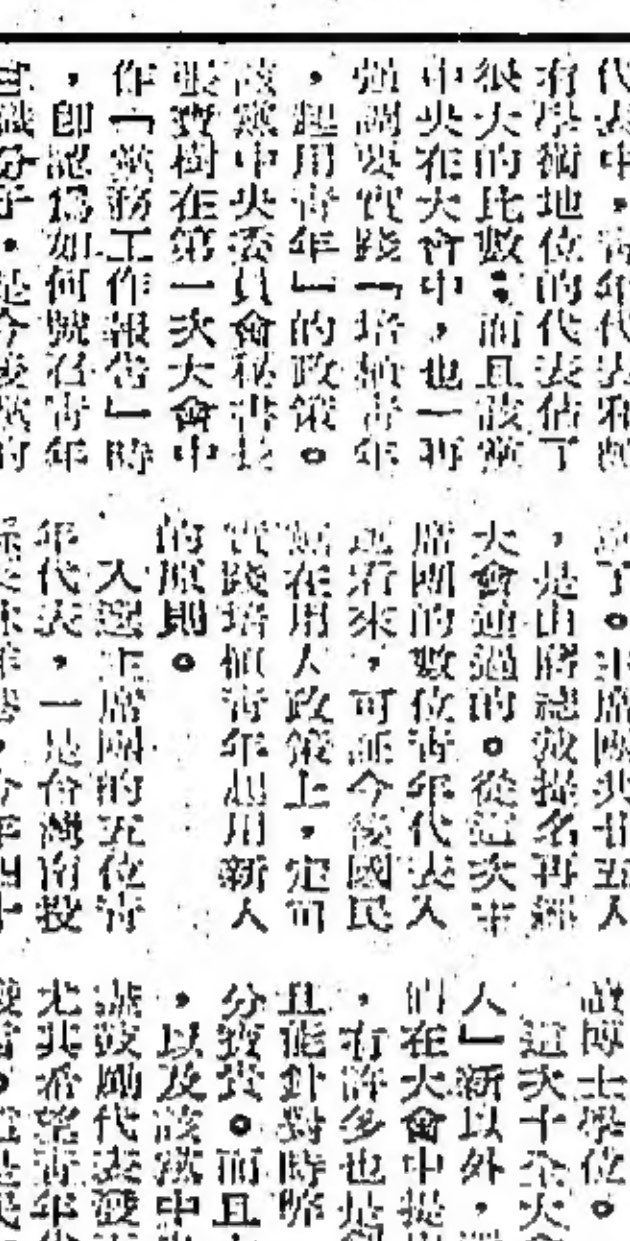 代表中，青年代表和
有學術地位的代表佔了
很大的比數；而且該黨
中央在大會中，也一再
強調要實踐「培植青年
，起用青年」的政策。
該黨中央委員會秘書長
張寶樹在第一次大會中
作「黨務工作報告」時
，即認為如何號召青年
知識分子，是今後黨的
了。主席團共廿五人
，是由蔣總裁提名再經
大會通過的。從這次主
席團的數位青年代表入
選看來，可証今後國民
黨在用人政策上，定可
實踐培植青年起用新人
的原則。
入選主席團的五位青
年代表，一是台灣南投
今年四十
讀博士學位。
這次十全大會
人」新以外，
們在大會中提
，有許多也是
且能針對時弊
分寶貴。而且
，以及該黨中
議鼓勵代表發
尤其希望青年代